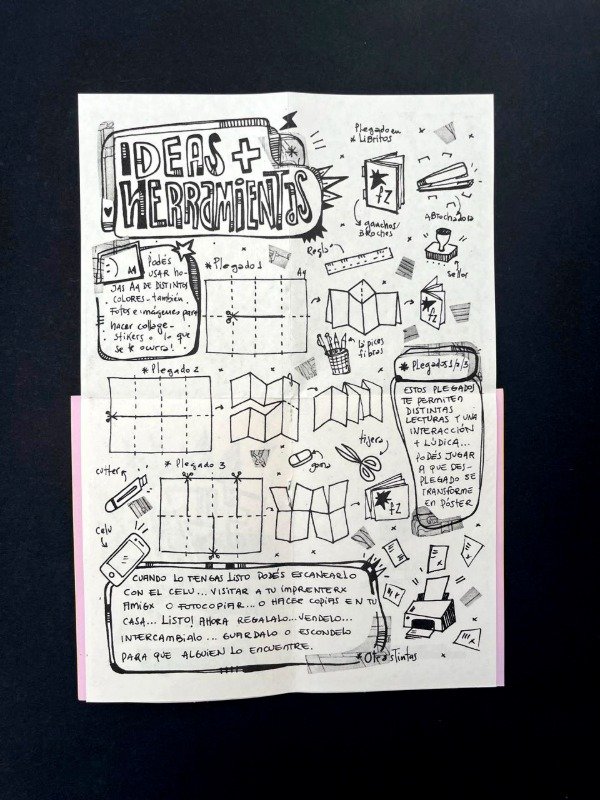 IDEAS +
HERRAMIENTAS
Plegado en
* LIBRITOS
fZ
ganchos/
BROCHES
ABROCHADORA
sellos
Regla
PODÉS
USAR HO-
JAS A4 DE DISTINTOS
COLORES - también
FOTOS e imágenes para
hacer collage -
stikers o lo que
se te ocurra!
* Plegado 1
A4
fZ
lápices
fibras
* Plegado 2
* Plegados 1/2/3
ESTOS PLEGADOS
TE PERMITEN
DISTINTAS
LECTURAS Y UNA
INTERACCIÓN
+ LÚDICA...
PODÉS JUGAR
A QUE DES-
PLEGADO SE
TRANSFORME
EN PÓSTER
tijera
goma
cutter
* Plegado 3
fZ
celu
CUANDO LO TENGAS LISTO PODÉS ESCANEARLO
CON EL CELU... VISITAR A TU IMPRENTERX
AMIGX O FOTOCOPIAR... O HACER COPIAS EN TU
CASA... LISTO! AHORA REGALALO... VENDELO...
INTERCAMBIALO... GUARDALO O ESCONDELO
PARA QUE ALGUIEN LO ENCUENTRE.
* OtrasTintas